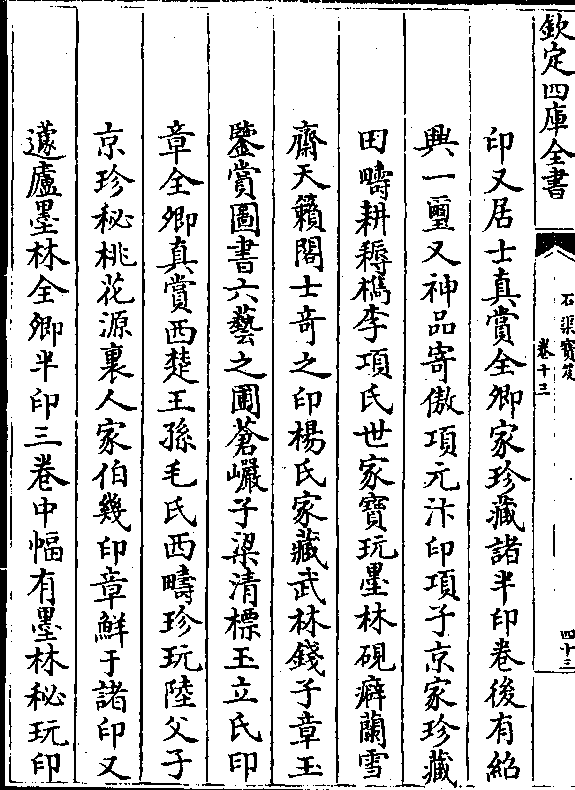 欽定四庫全書
石渠寶笈
卷十三
四十三
印又居士真賞全卿家珍藏諸半印卷後有紹
興一璽又神品寄傲項元汴印項子京家珍藏
田疇耕耨檇李項氏世家寶玩墨林硯癖蘭雪
齋天籟閣士奇之印楊氏家藏武林錢子章玉
鑒賞圖書六藝之圃蒼巖子梁清標玉立氏印
章全卿真賞西楚王孫毛氏西疇珍玩陸父子
京珍秘桃花源裏人家伯幾印章鮮于諸印又
蘧廬墨林全卿半印三卷中幅有墨林秘玩印